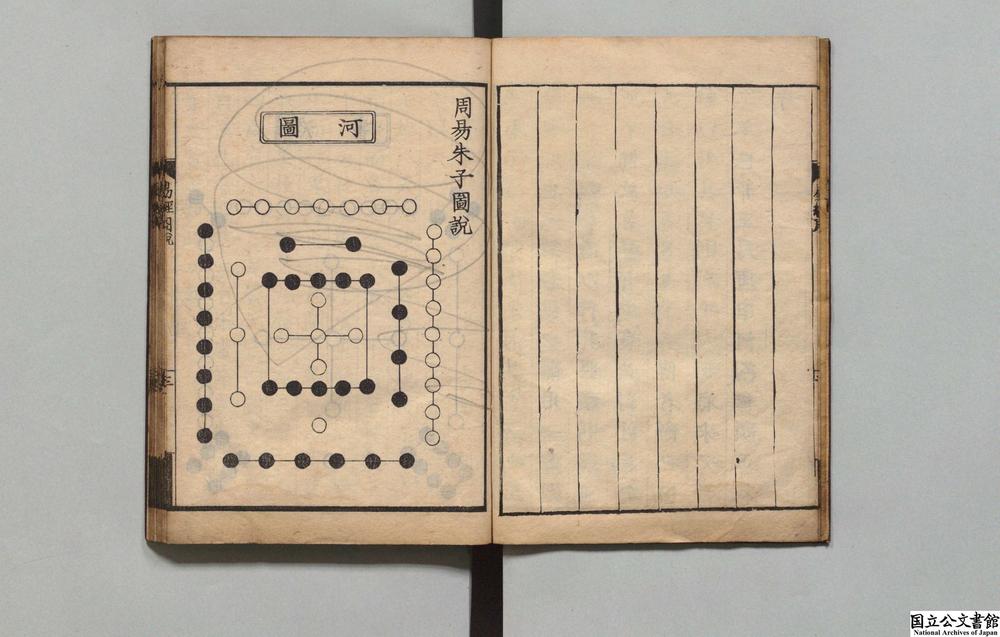 周易朱子圖說
河圖
易經圖說
三
国立公文書館
National Archives of Japan